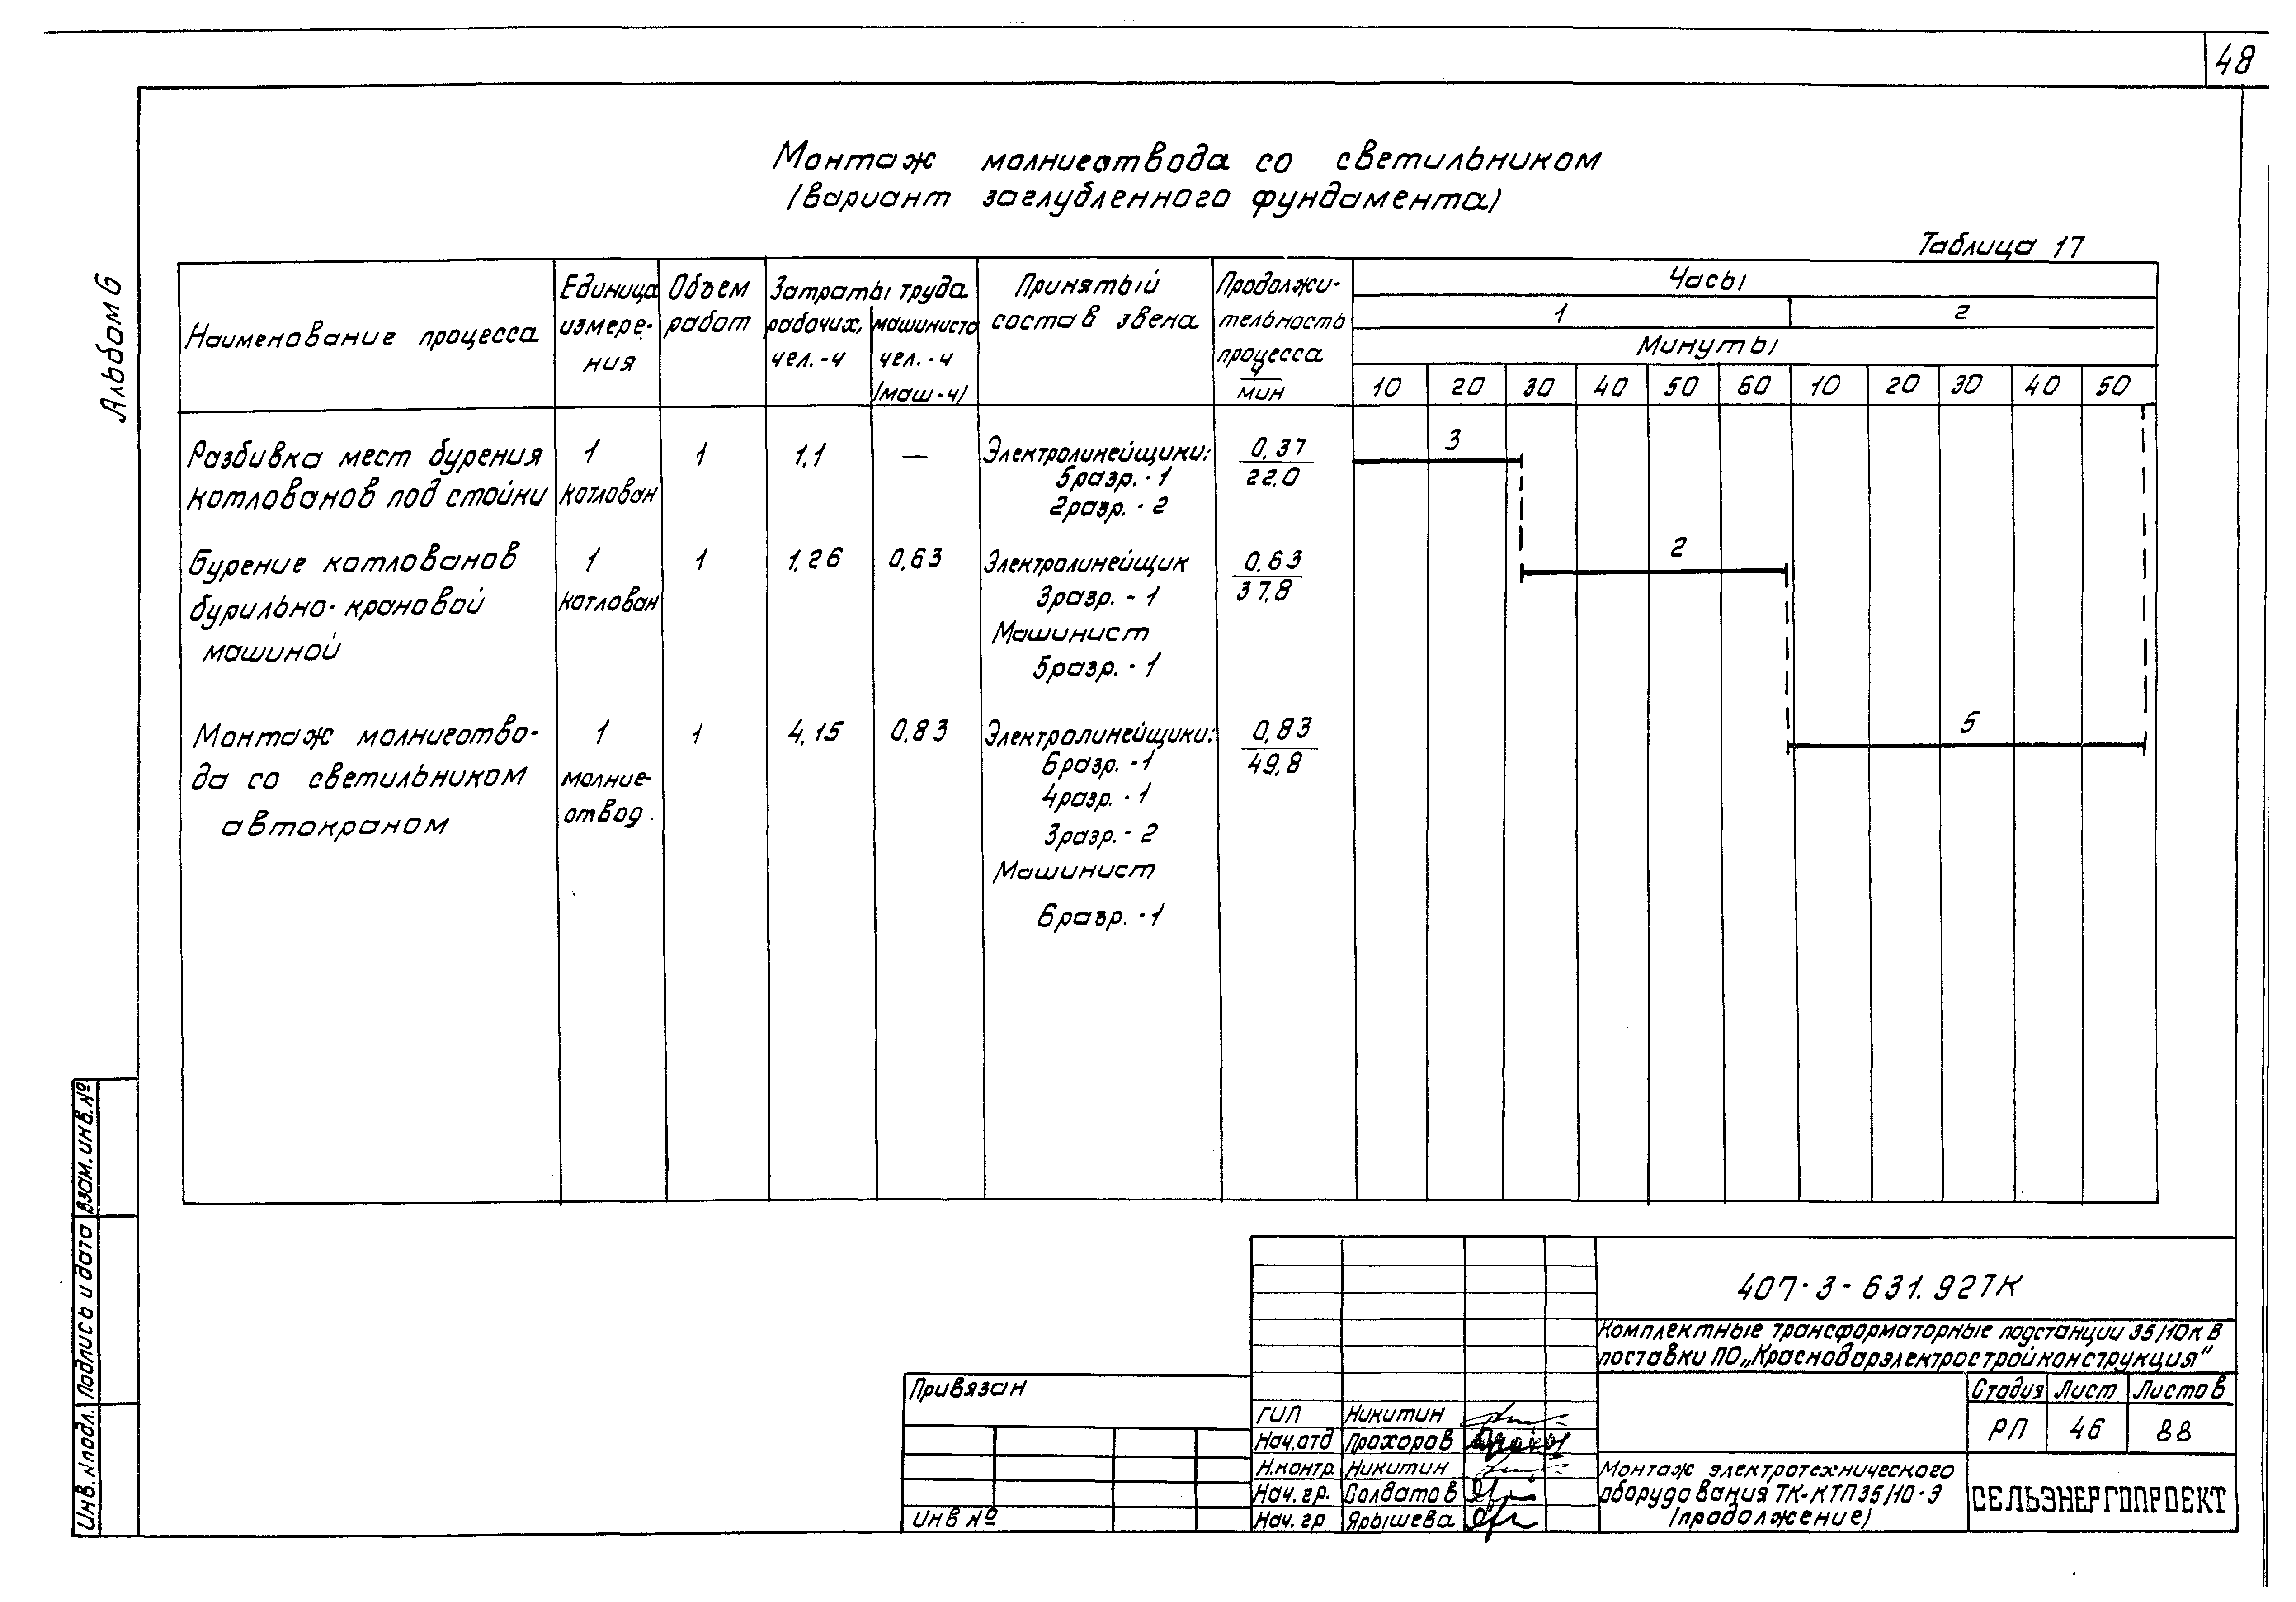 48
Монтаж молниеотвода со светильником
(вариант заглубленного фундамента)
Таблица 17
Альбом 6
Наименование процесса
Единица измере- ния
Объем работ
Затраты труда
рабочих, чел.-ч
машиниста чел.-ч (маш-ч)
Принятый состав звена
Продолжи- тельность процесса ч мин
Часы
1 2
Минуты
10 20 30 40 50 60 10 20 30 40 50
Разбивка мест бурения 1 1 1,1 — Электролинейщики: 0,37 3
котлованов под стойки котлован 5разр.-1 22,0
2разр.-2
Бурение котлованов 1 1 1,26 0,63 Электролинейщик 0,63 2
бурильно-крановой котлован 3разр.-1 37,8
машиной Машинист
5разр.-1
Монтаж молниеотво- 1 1 4,15 0,83 Электролинейщики: 0,83 5
да со светильником молние- 6разр.-1 49,8
автокраном отвод 4разр.-1
3разр.-2
Машинист
6разр.-1
Взам.инв.№
Подпись и дата
Инв.№подл.
407-3-631.92ТК
Комплектные трансформаторные подстанции 35/10кВ
поставки ПО„Краснодарэлектростройконструкция"
Привязан
Инв №
ГИП Никитин
Нач.отд Прохоров
Н.контр. Никитин
Нач.гр. Солдатов
Нач.гр Ярышева
Стадия Лист Листов
РП 46 88
Монтаж электротехнического
оборудования ТК-КТП35/10-Э
(продолжение)
СЕЛЬЭНЕРГОПРОЕКТ